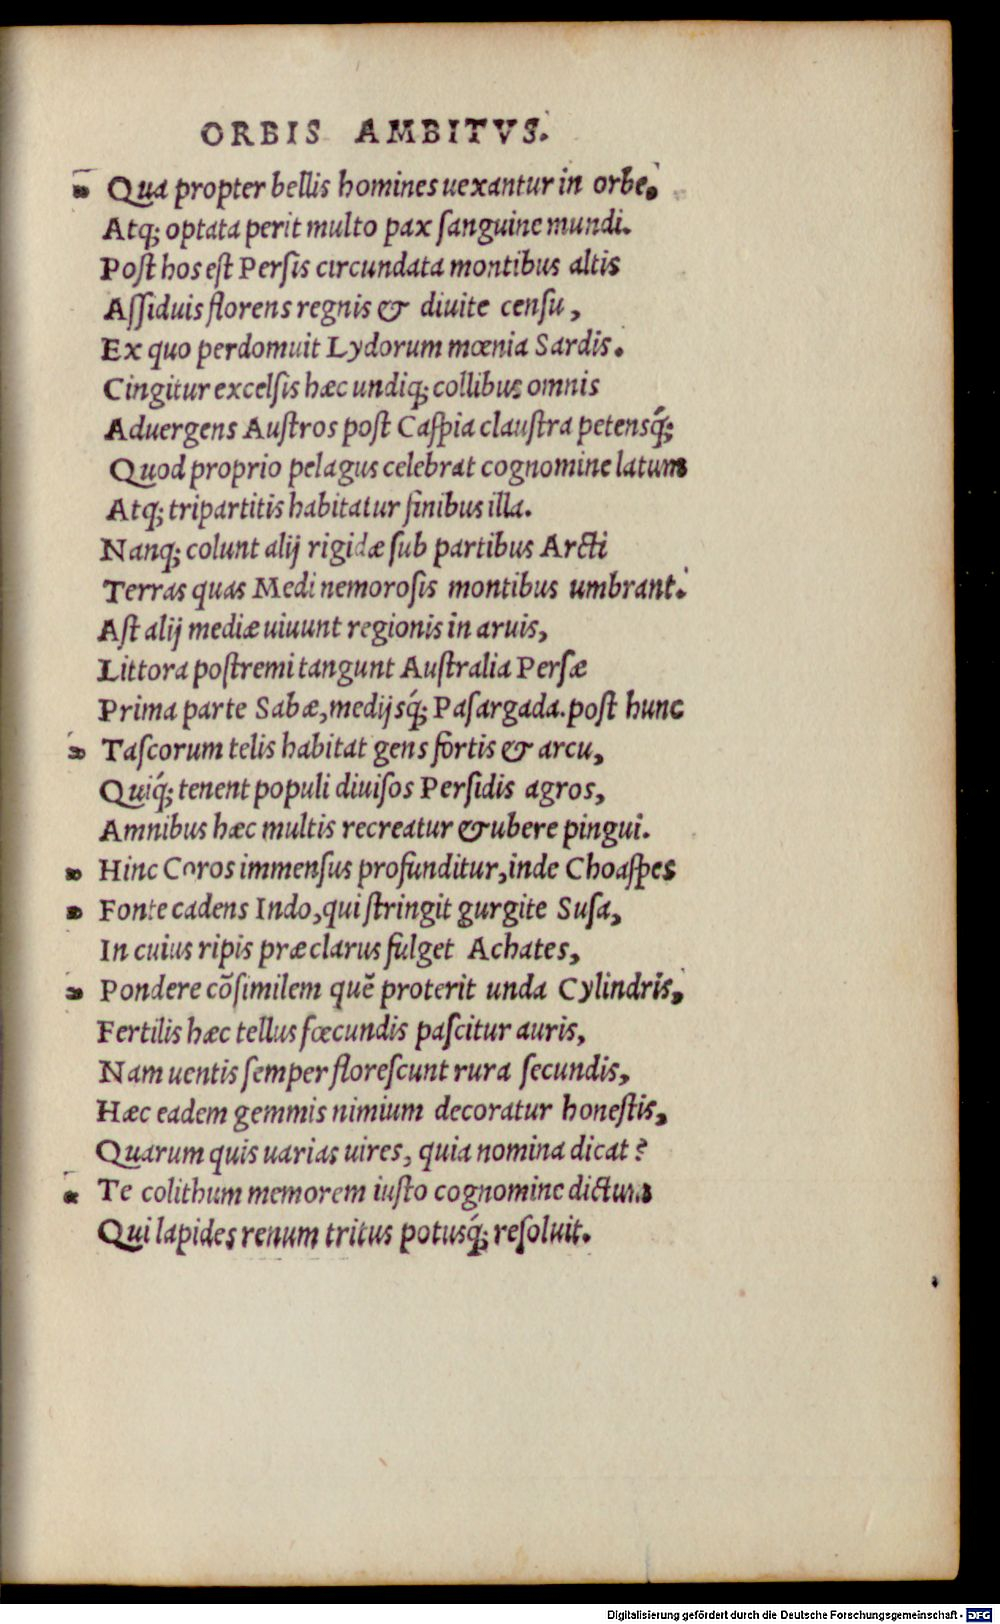 ORBIS AMBITVS.
Qua propter bellis homines uexantur in orbe,
Atq; optata perit multo pax ſanguine mundi.
Poſt hos eſt Perſis circundata montibus altis
Aſſiduis florens regnis & diuite cenſu,
Ex quo perdomuit Lydorum mœnia Sardis.
Cingitur excelſis hæc undiq; collibus omnis
Aduergens Auſtros poſt Caſpia clauſtra petensq́;
Quod proprio pelagus celebrat cognomine latum
Atq; tripartitis habitatur finibus illa.
Nanq; colunt alij rigidæ ſub partibus Arcti
Terras quas Medi nemoroſis montibus umbrant.
Aſt alij mediæ uiuunt regionis in aruis,
Littora poſtremi tangunt Auſtralia Perſæ
Prima parte Sabæ, medijsq́; Paſargada. poſt hunc
Taſcorum telis habitat gens fortis & arcu,
Quiq́; tenent populi diuiſos Perſidis agros,
Amnibus hæc multis recreatur & ubere pingui.
Hinc Coros immenſus profunditur, inde Choaſpes
Fonte cadens Indo, qui ſtringit gurgite Suſa,
In cuius ripis præclarus fulget Achates,
Pondere cõſimilem quẽ proterit unda Cylindris,
Fertilis hæc tellus fœcundis paſcitur auris,
Nam uentis ſemper floreſcunt rura ſecundis,
Hæc eadem gemmis nimium decoratur honeſtis,
Quarum quis uarias uires, quia nomina dicat?
Te colithum memorem iuſto cognomine dictum
Qui lapides renum tritus potusq́; reſoluit.
Digitalisierung gefördert durch die Deutsche Forschungsgemeinschaft - DFG